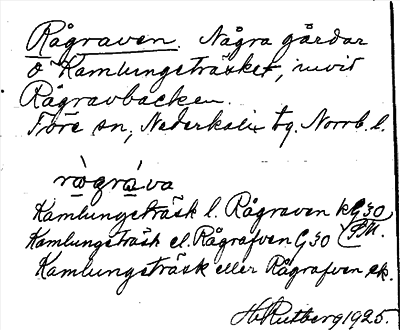 Rågraven. Några gårdar
ö Kamlungeträsket, invid
Rågravbacken.
Töre sn, Nederkalix tg. Norrb. l.
rògrá̀va
Kamlungeträsk l. Rågraven kG30
Kamlungeträsk el. Rågrafven G30
Kamlungeträsk eller Rågrafven
H Rutberg 1925.